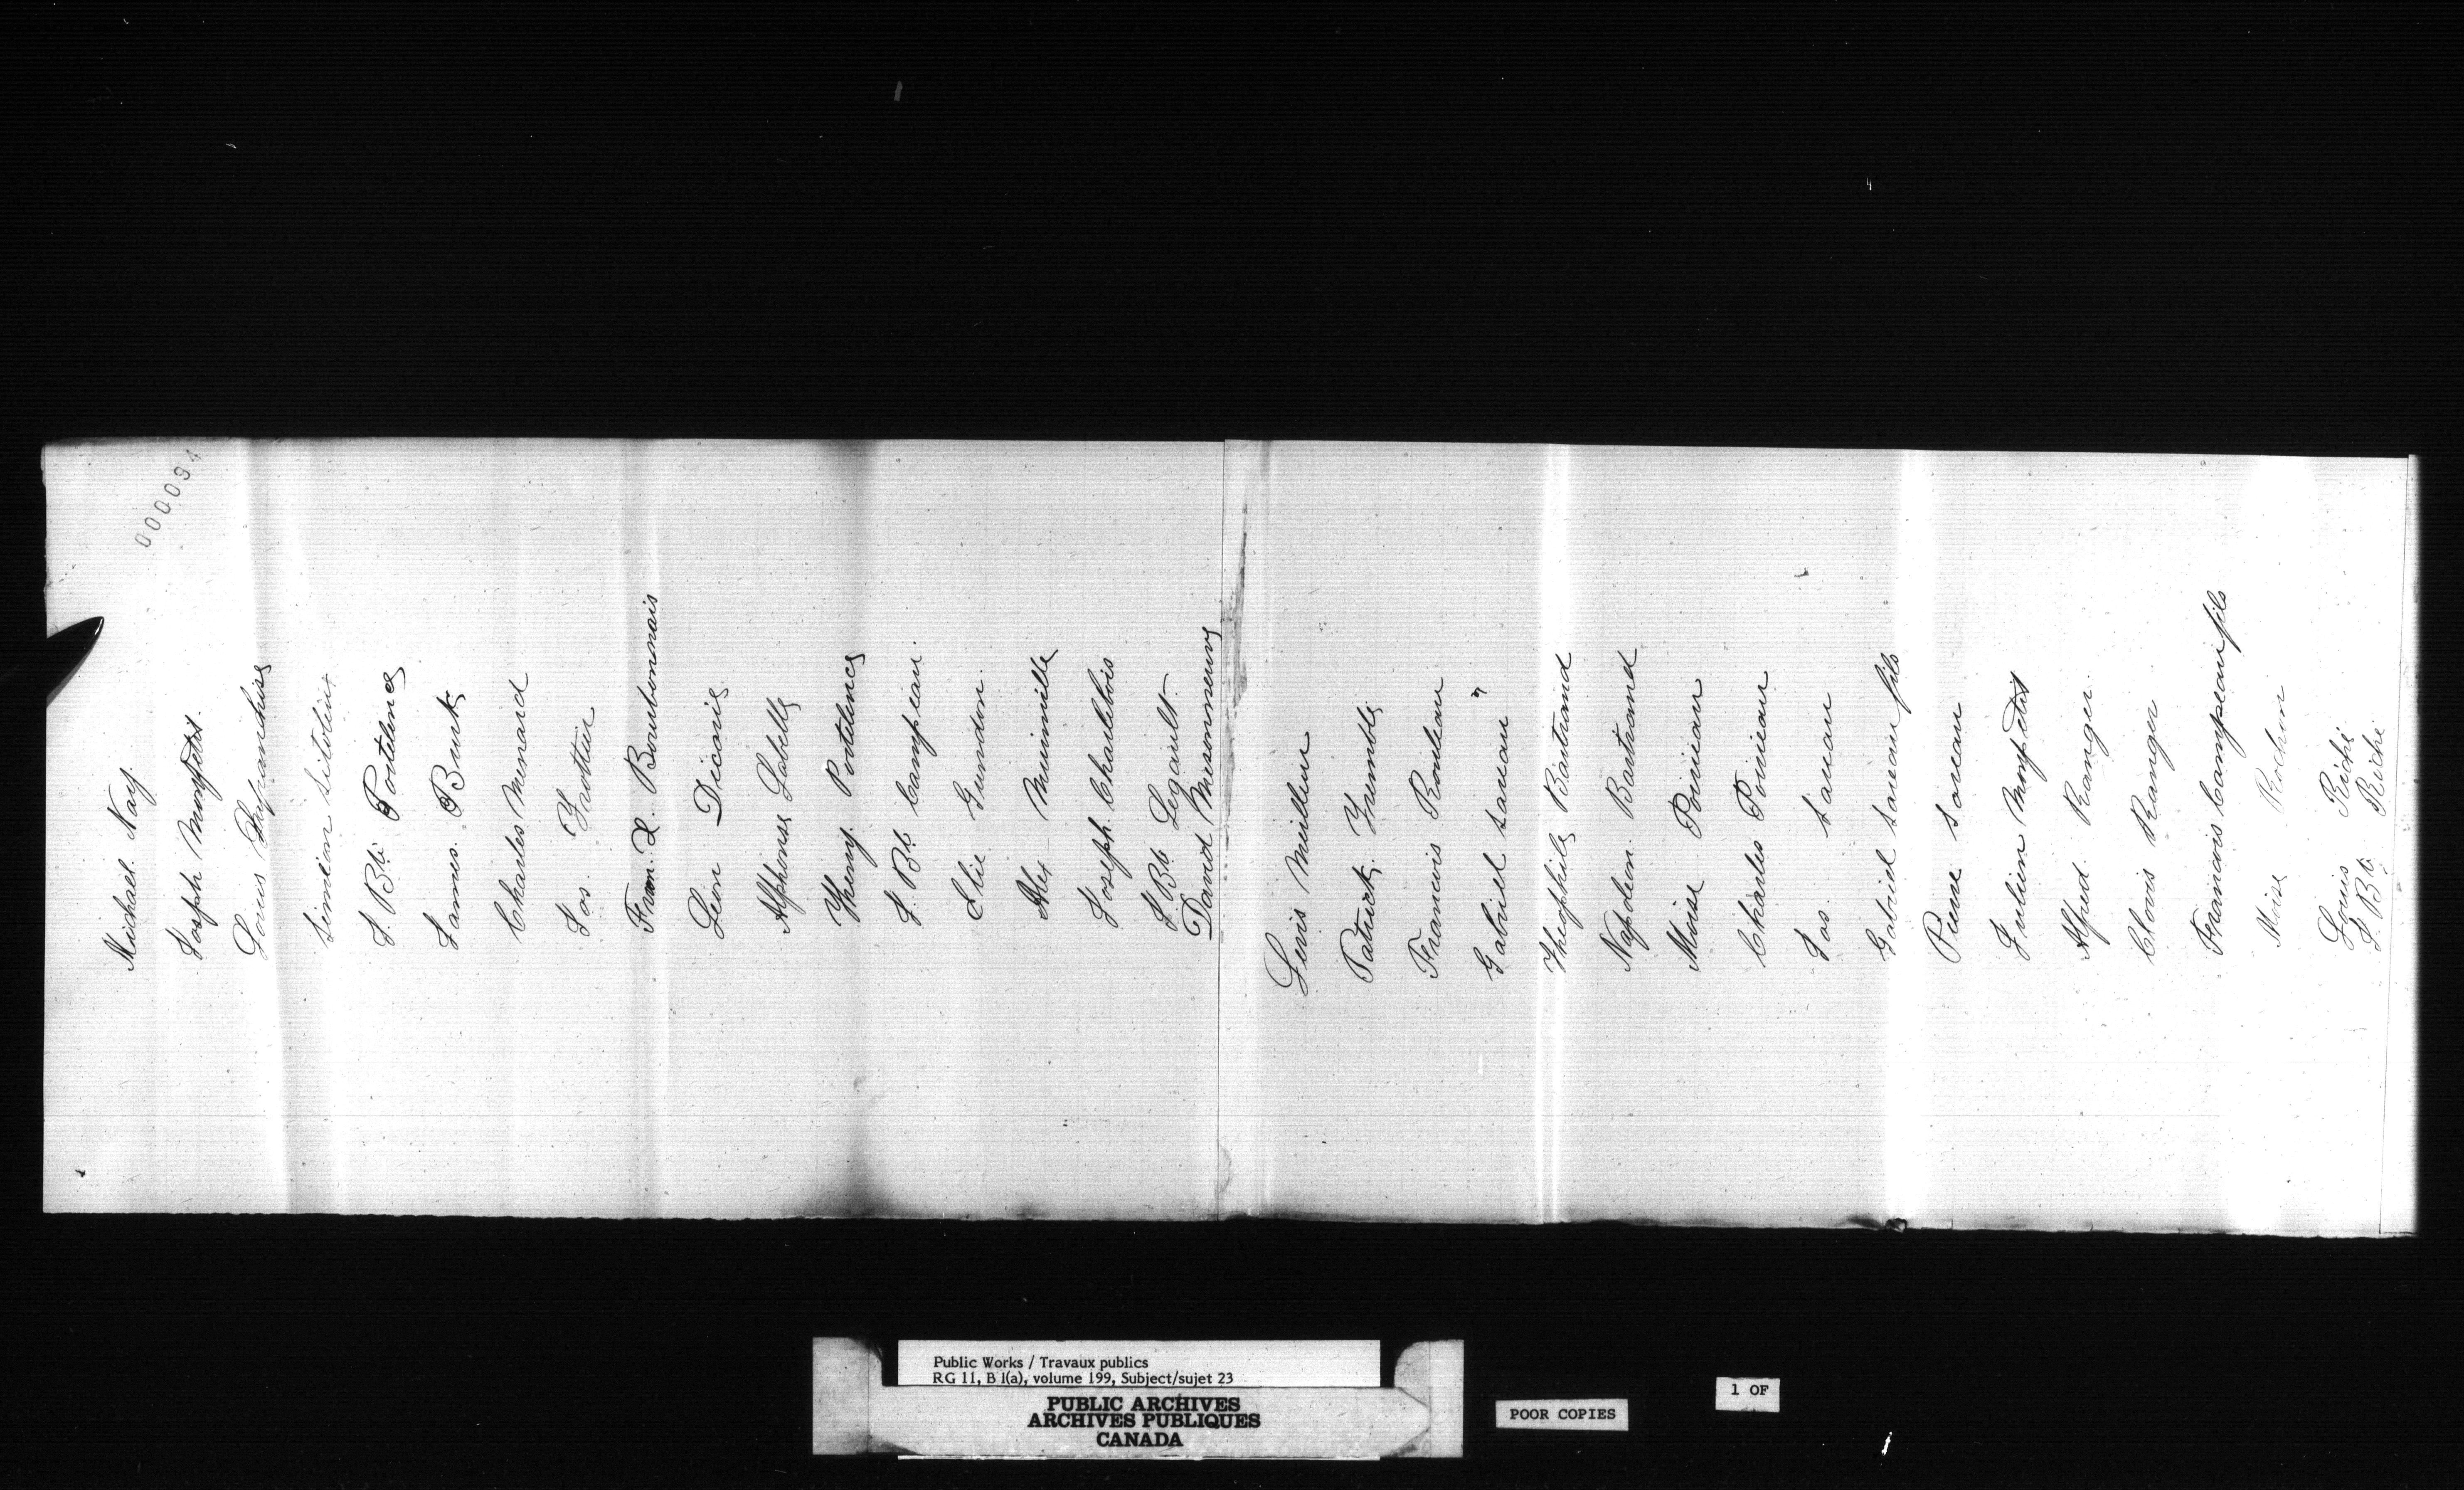 000094
Michael Nay.
Joseph Monpetit.
Louis Dupendise
Simeon Sitoleux
J. Bte Portelence
James Brunk
Charles Menard
Jos. Trottier
Fran. X. Bourbonnais
Leon Dicaire
Alphonse Labelle
Thery Portelence
J. Bte Campeau.
Elie Guindon
Alex Miniville
Joseph Charlebois
J. Bte Legault
David Mesonneuve
Levis Meilleur
Patrick Trumble
Francois Rouleau
Gabriel Sauau "
Theophile Bartrand
Napoleon Bartrand
Moise Poirieau
Charles Poirieau
Jos. Sauau
Gabriel Sauau fils
Pierre Sauau
Julien Monpetit
Alfred Ranger.
Clovis Ranger
Francois Campeau fils
Moise Rochon
Louis Riché
J. Bte Riché
Public Works / Travaux publics
RG 11, B 1(a), volume 199, Subject/sujet 23
PUBLIC ARCHIVES
ARCHIVES PUBLIQUES
CANADA
POOR COPIES
1 OF